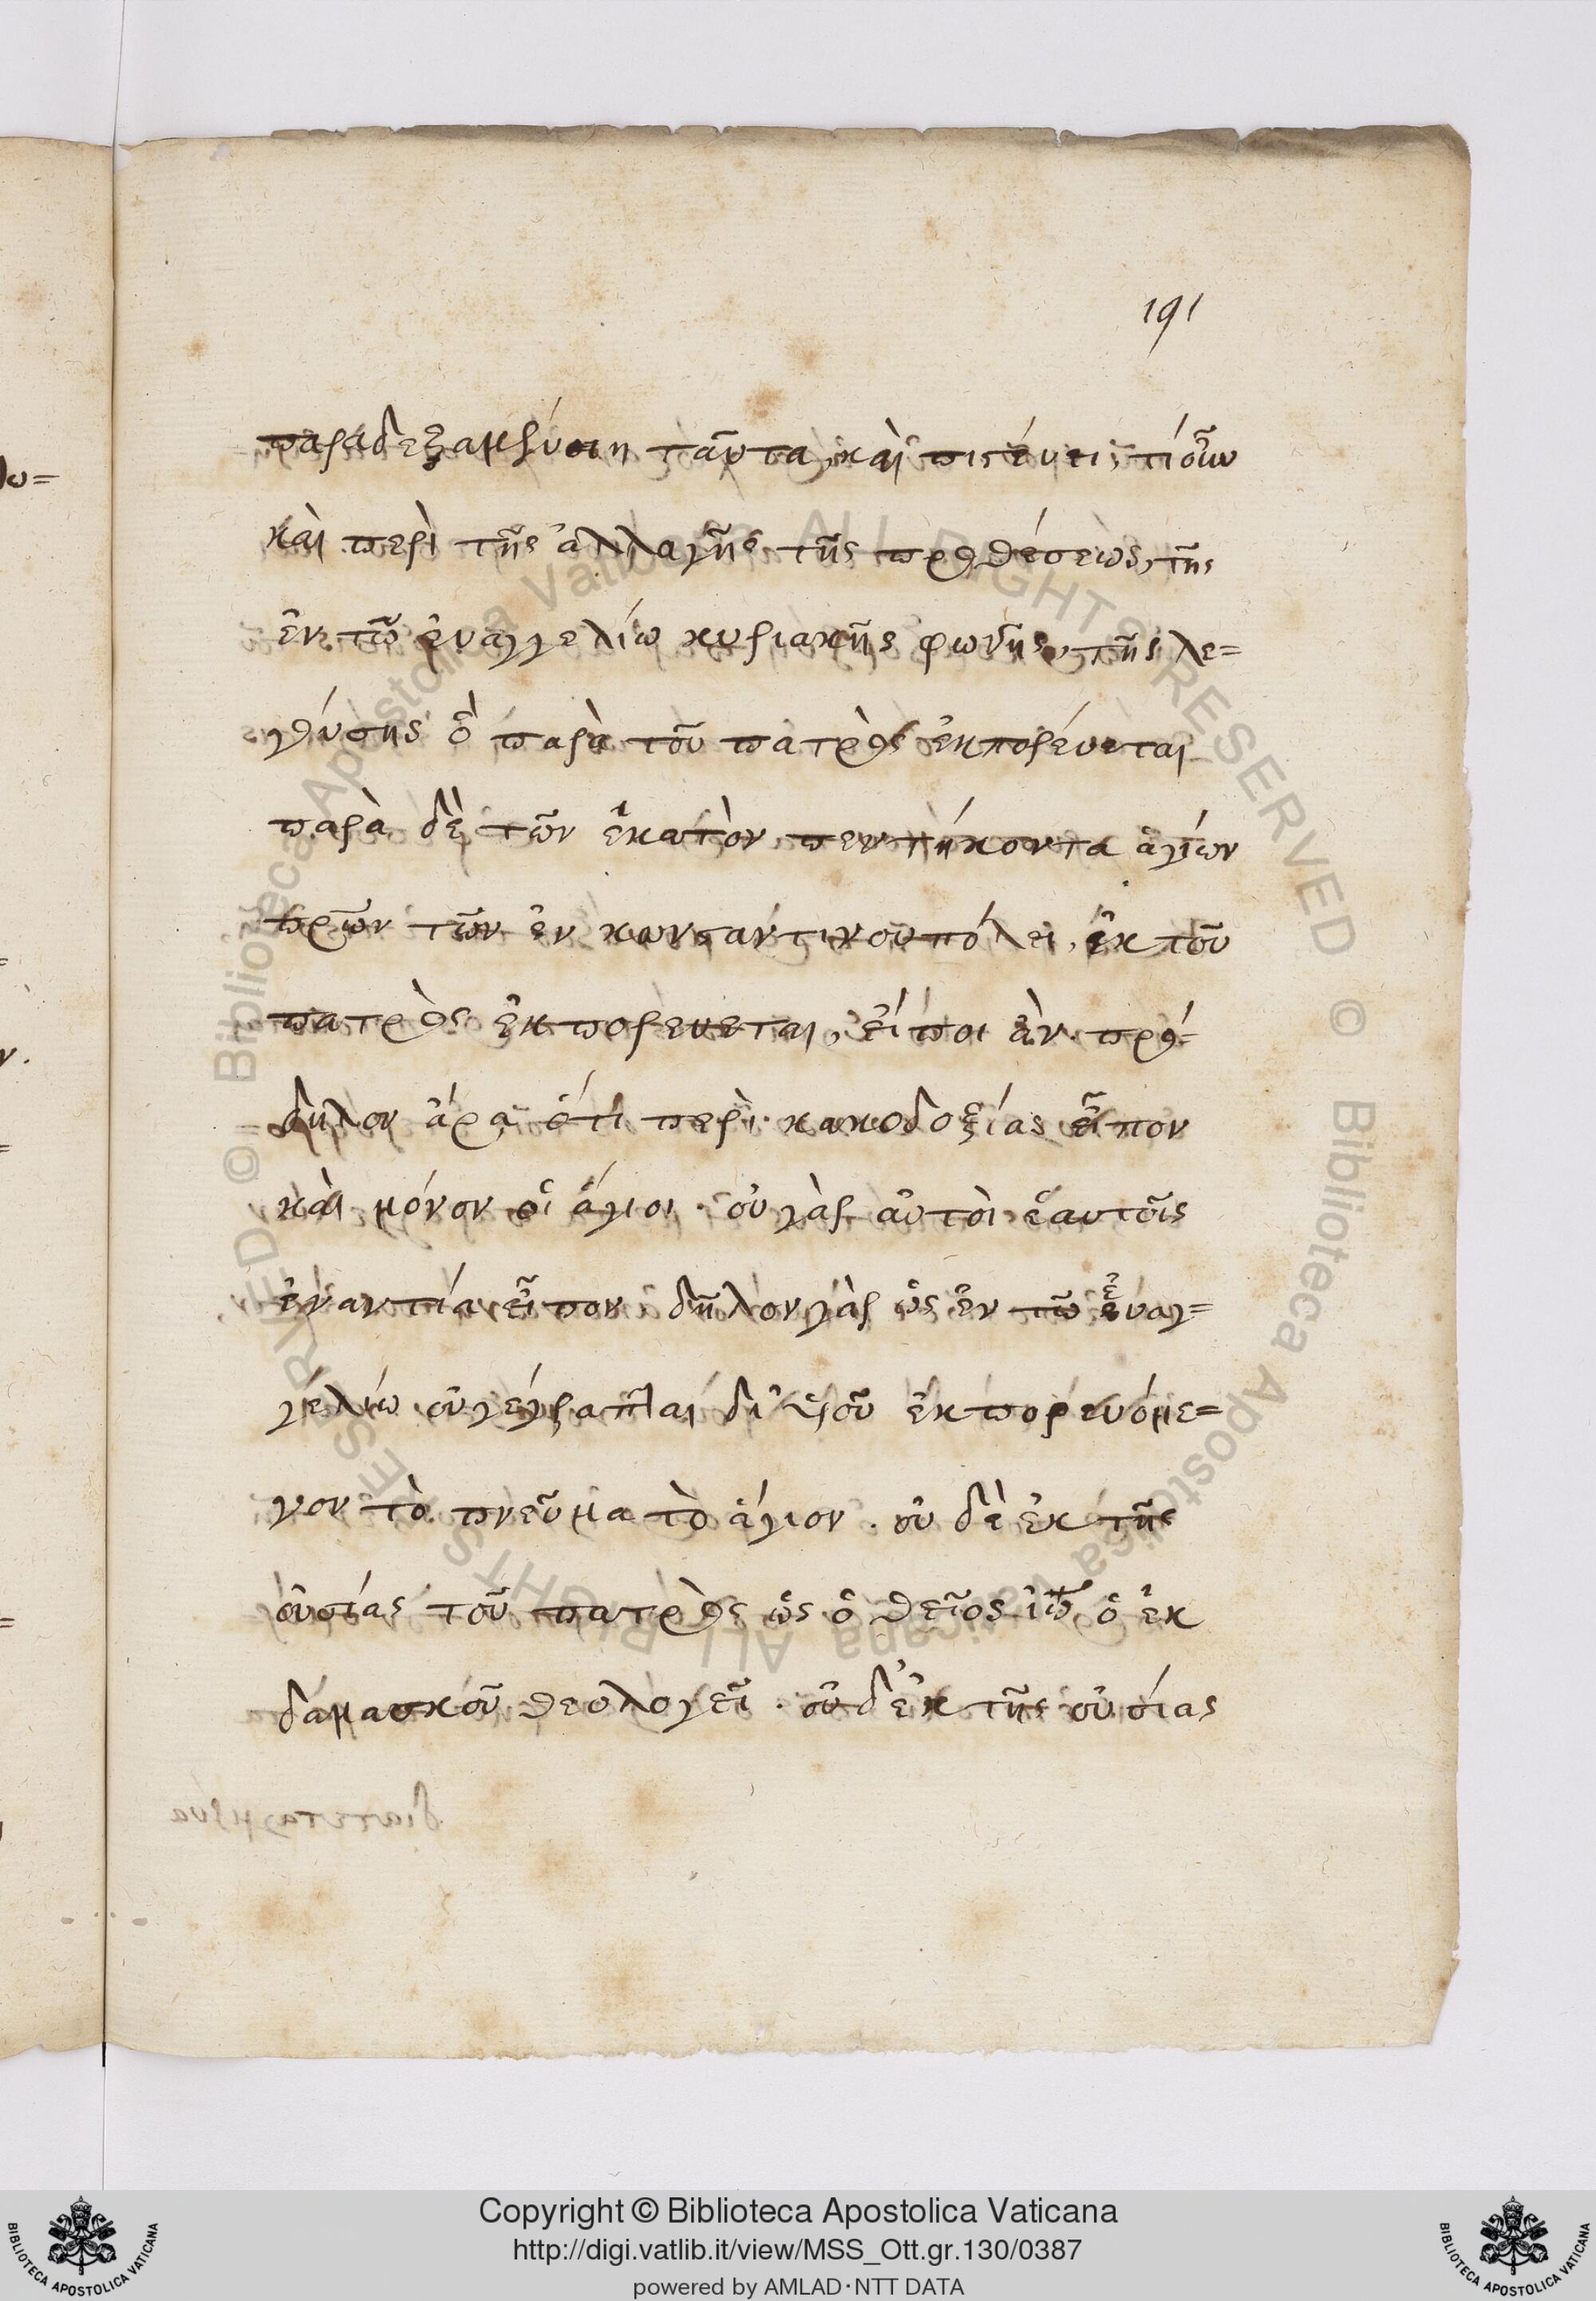 191
παραδεξαμένοιη ταῦτα, καὶ πιστεύει, τί οὖν
καὶ περὶ τῆς ἀλλαγῆς τῆς προθέσεως, τῆς
ἐν τῶ ἐυαγγελίω κυριακῆς φωνῆς, τῆς λε=
γούσης ὃ παρὰ τοῦ πατρὸς ἐκπορέυεται
παρὰ δὲ τῶν ἑκατὸν πεντήκοντα ἁγίων
πρῶν τῶν ἐν κωνσταντινουπόλει, ἐκ τοῦ
πατρὸς ἐκπορευεται, ἐίποι ἂν. πρό=
δηλον ἄρα ὅτι περὶ κακοδοξίας εἶπον
καὶ μόνον οἱ ἅγιοι. οὐ γὰρ αὐτοὶ ἑαυτοῖς
ἐναντία εἶπον. δῆλον γὰρ ὡς ἐν τῶ ἐυαγ=
γελίω οὐ γέγραπται δι' υἱοῦ ἐκπορευόμε=
νον τὸ πνεῦμα τὸ ἅγιον. οὐ δὲ ἐκ τῆς
οὐσίας τοῦ πατρὸς ὡς ὁ θεῖος ἰω ὁ ἐκ
δαμασκοῦ θεολογεῖ. οὐδ' ἐκ τῆς οὐσίας
διατεταγμένα
λω=
ν.
Copyright © Biblioteca Apostolica Vaticana
http://digi.vatlib.it/view/MSS_Ott.gr.130/0387
powered by AMLAD·NTT DATA
BIBLIOTECA APOSTOLICA VATICANA
BIBLIOTECA APOSTOLICA VATICANA
© Biblioteca Apostolica Vaticana ALL RIGHTS RESERVED
© Biblioteca Apostolica Vaticana ALL RIGHTS RESERVED